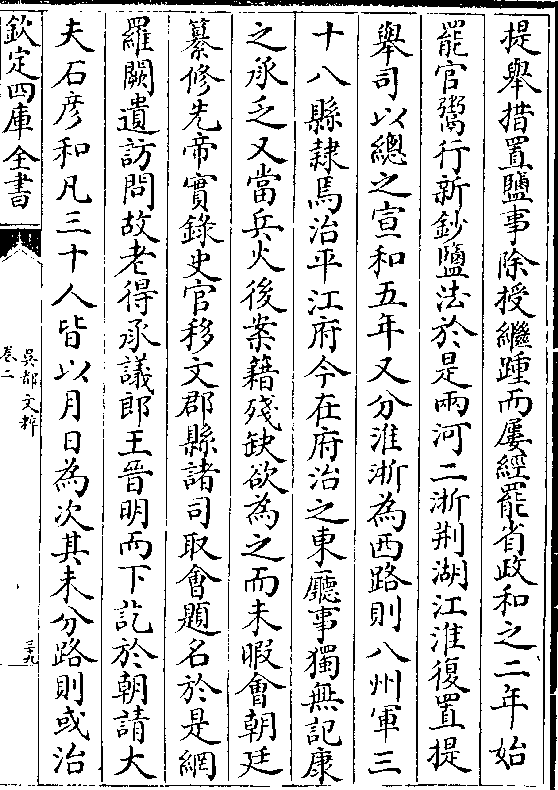 提舉措置鹽事除授繼踵而屢經罷省政和之二年始
罷官鬻行新鈔鹽法於是兩河二浙荆湖江淮復置提
舉司以總之宣和五年又分淮浙為西路則八州軍三
十八縣隷焉治平江府今在府治之東廳事獨無記康
之承乏又當兵火後案籍殘缺欲為之而未暇會朝廷
纂修先帝實錄史官移文郡縣諸司取會題名於是網
羅闕遺訪問故老得承議郎王晉明而下訖於朝請大
夫石彦和凡三十人皆以月日為次其未分路則或治
欽定四庫全書
吳都文粹
卷二
三十九